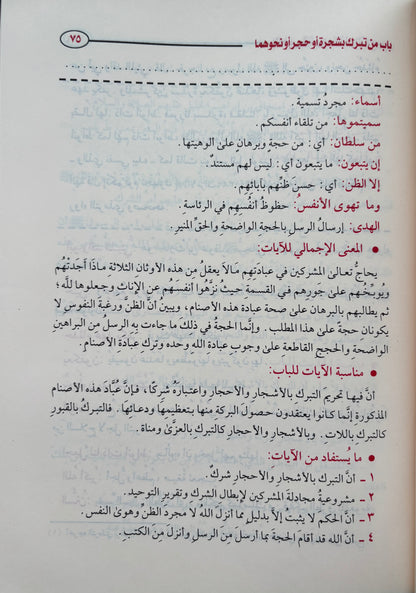 باب من تبرك بشجرة أو حجر أو نحوهما
٧٥
أسماء: مجردُ تسمية.
سميتموها: من تلقاء أنفسكم.
من سلطان: أي: من حجة وبرهان على ألوهيتها.
إن يتبعون: أي: ما يتبعون أي: ليس لهم مستند.
إلا الظن: أي: حسنَ ظنِّهم بآبائهم.
وما تهوى الأنفس: حظوظُ أنفُسِهم في الرئاسة.
الهدى: إرسالُ الرسلِ بالحجةِ الواضحة والحقِّ المنيرِ.
● المعنى الإجمالي للآيات:
يحاجُّ تعالى المشركين في عبادتِهم مالا يعقلُ من هذه الأوثان الثلاثة ماذا أجدَتْهُم
ويُوبخُهم على جَورِهم في القسمةِ حيثُ نزَّهوا أنفسَهُم عن الإناثِ وجعلوها للَّه؛
ثم يطالبهم بالبرهان على صحة عبادة هذه الأصنام، ويبينُ أنَّ الظنَّ ورغبةَ النفوسِ لا
يكونان حجةً على هذا المطلب. وإنَّما الحجةُ في ذلك ما جاءت به الرسلُ من البراهين
الواضحة والحجج القاطعةِ على وجوبِ عبادةِ اللهِ وحده وتركِ عبادةِ الأصنام.
● مناسبة الآيات للباب:
أنَّ فيها تحريمَ التبركِ بالأشجارِ والأحجارِ واعتبارَهُ شركًا، فإنَّ عُبَّادَ هذه الأصنام
المذكورة إنَّما كانوا يعتقدون حصولَ البركة منها بتعظيمها ودعائها. فالتبركُ بالقبورِ
كالتبركِ باللات. وبالأشجارِ والأحجارِ كالتبركِ بالعزَّى ومناة.
● ما يُستفاد من الآيات:
١ - أنَّ التبركَ بالأشجارِ والأحجارِ شركٌ.
٢ - مشروعيةُ مجادلةِ المشركين لإبطال الشرك وتقريرِ التوحيد.
٣ - أنَّ الحكمَ لا يثبتُ إلاَّ بدليلٍ مما أنزلَ اللهُ لا مجردَ الظنِّ وهوى النفس.
٤ - أنَّ الله قد أقامَ الحجةَ بما أرسلَ مِنَ الرسلِ وأنزلَ مِنَ الكتبِ.